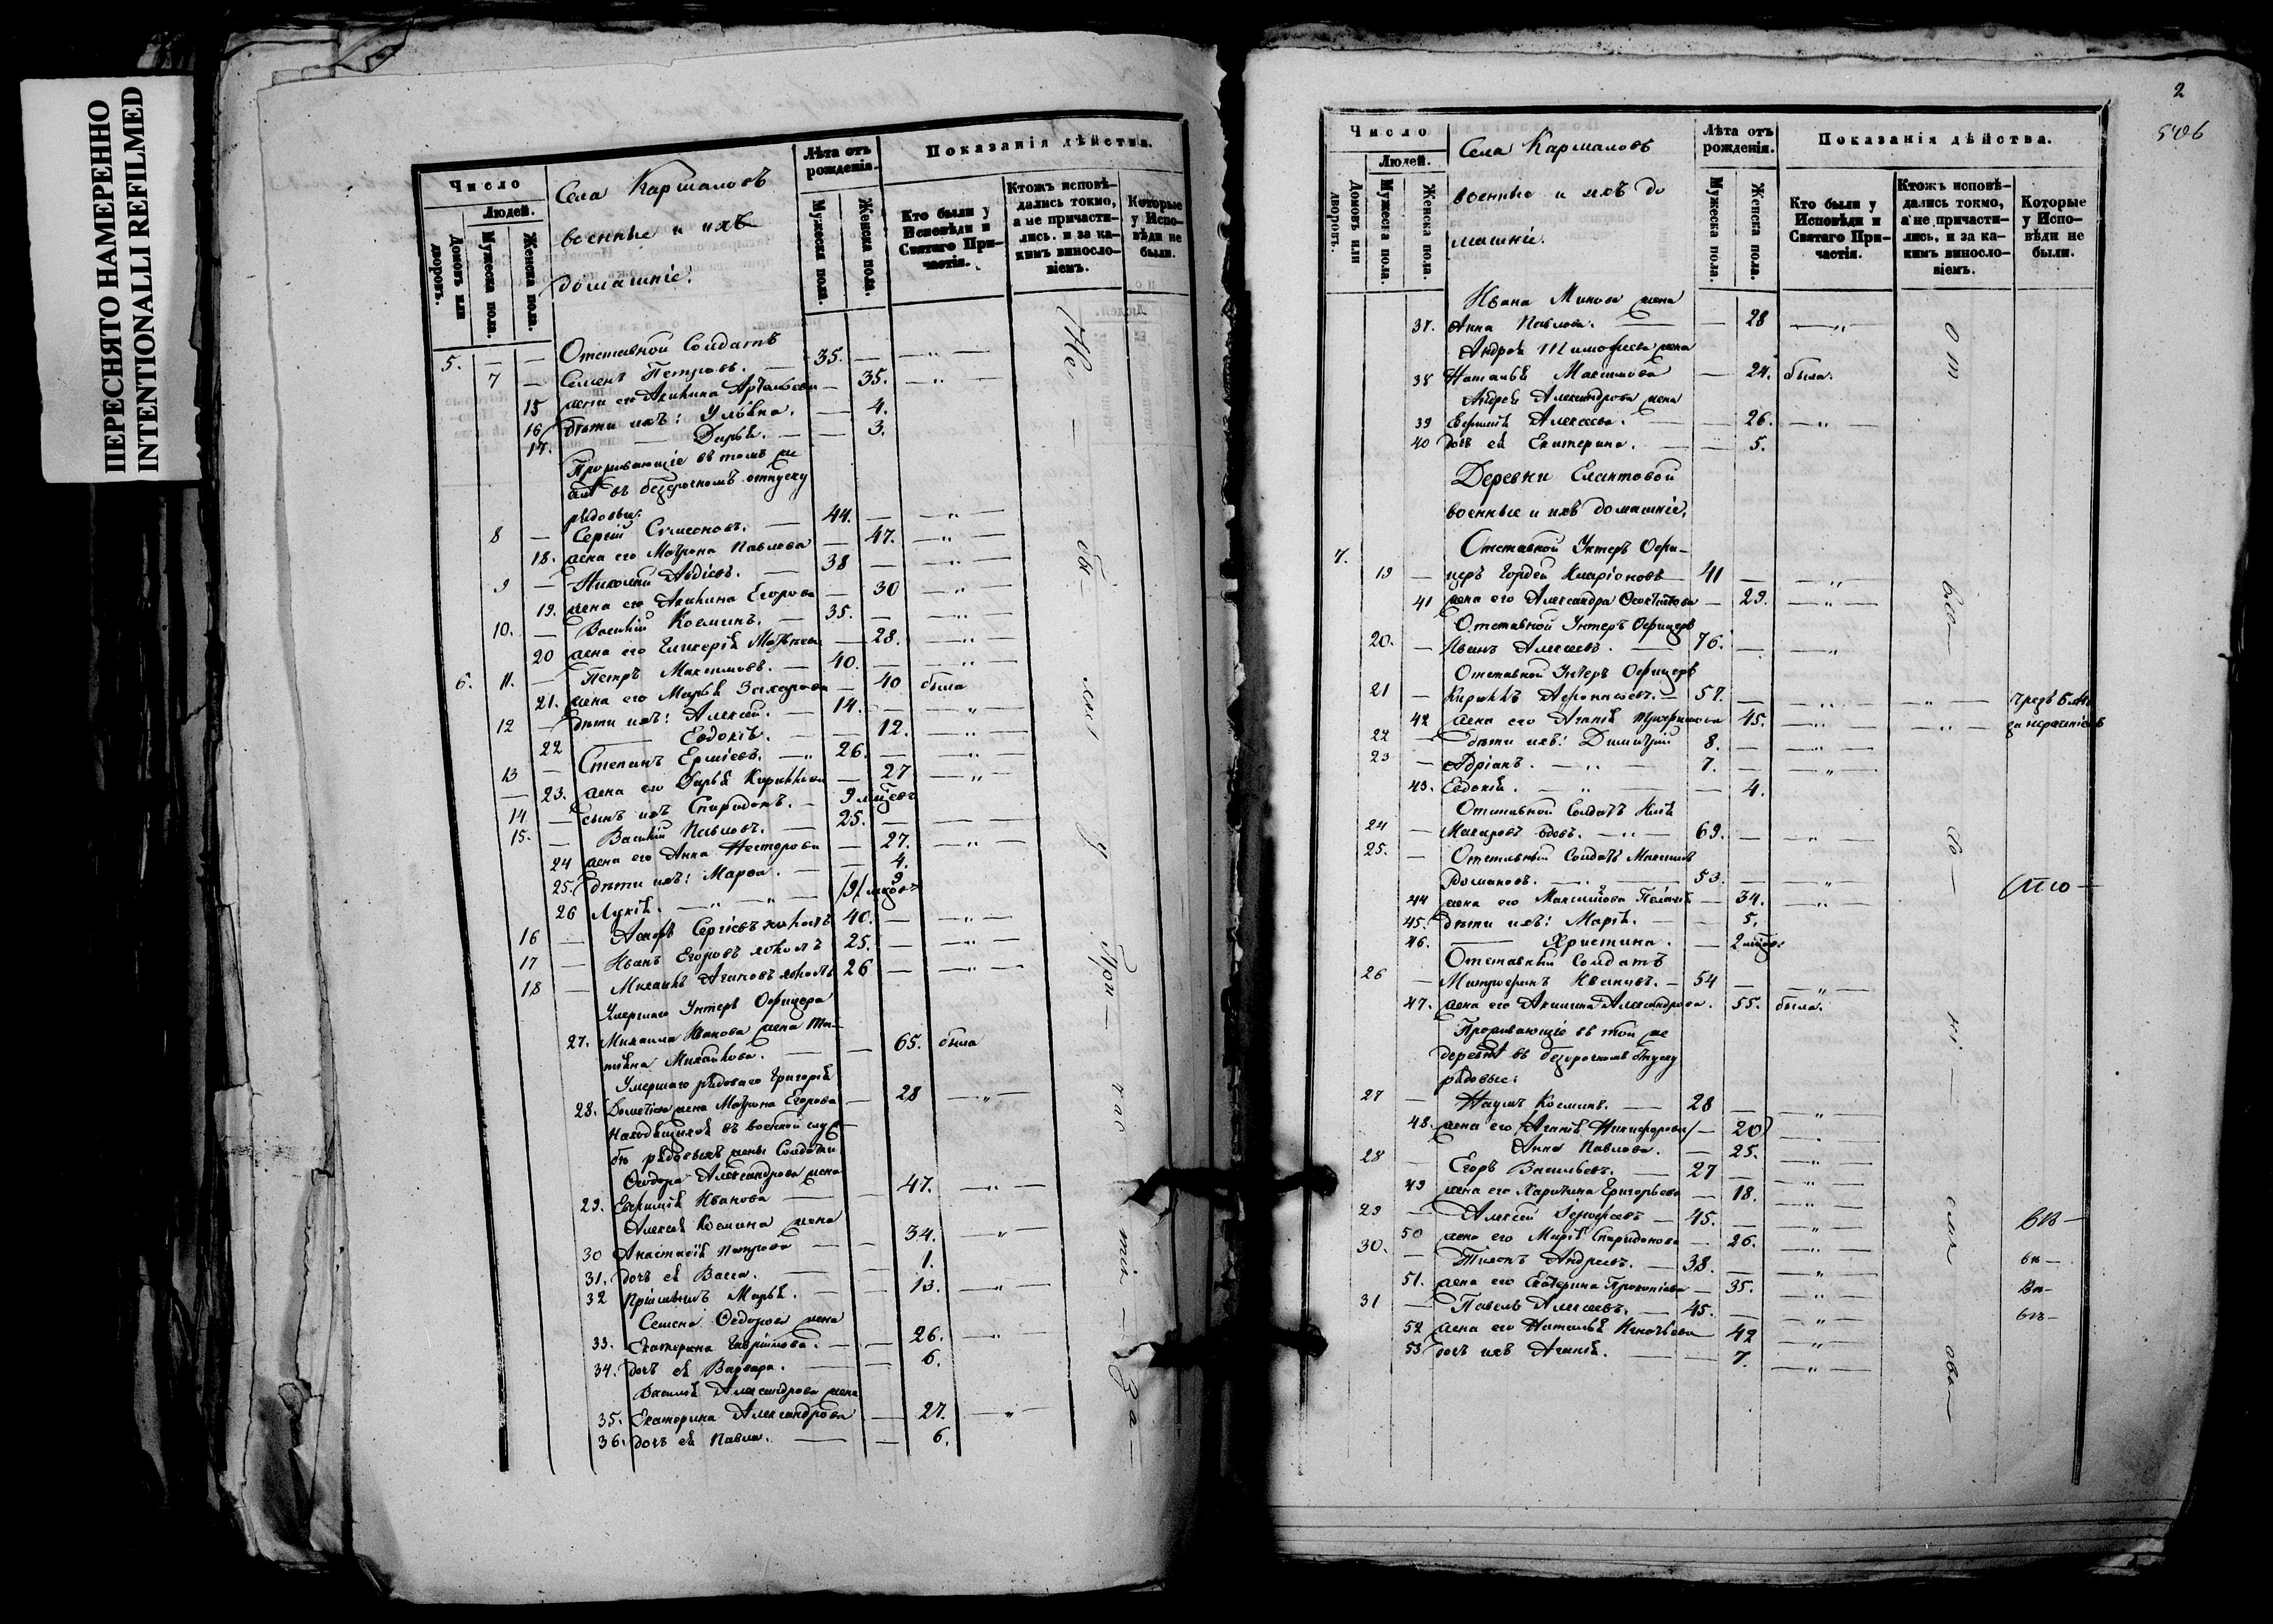 ПЕРЕСНЯТО НАМЕРЕННО
INTENTIONALLI REFILMED
Число
Людей.
Домовъ или дворовъ.
Мужеска пола.
Женска пола.
Села Кармаловъ
военные и ихъ
домашніе.
Лѣта отъ рожденія.
Мужеска пола.
Женска пола.
Показанія дѣйства.
Кто были у Исповѣди и Святаго Причастія.
Ктожъ исповѣдались токмо, а не причастились, и за какимъ винословіемъ.
Которые у Исповѣди не были.
5. — — Отставной Солдатъ
7 — Семенъ Петровъ. — 35. —
15 жена его Акилина — 35.
16 дѣти ихъ: — 4.
17. — Дарья. — 3.
Проживающіе въ томъ же
въ безсрочномъ отпуску
рядовые:
8 — Сергій Симеоновъ. — 44. —
18. жена его Матрона Павлова — 47.
9 — Николай Авдіевъ. — 38 —
19. жена его Акилина Егорова — 30
10. — Василій Козминъ. — 35. —
20 жена его Гликерія Матѳеева — 28.
6. 11. — Петръ Максимовъ. — 40. —
21. жена его Марья Захарова — 40 была
12 — дѣти ихъ: Алексей. — 14. —
22 — Евдокія. — 12.
13 — Степанъ Ермиевъ. — 26. —
23. жена его Дарья Кирилова — 27
14 — сынъ ихъ Спиридонъ. — 9 мѣсяцевъ
15. — Василій Павловъ. — 25. —
24 жена его Анна Нестерова — 27.
25. дѣти ихъ: Марѳа. — 4.
26 Лукія. —
16 — Сергіевъ холостъ 40. —
17 — Иванъ Егоровъ холостъ 25. —
18 — Михаилъ Агаповъ холостъ 26 —
Умершаго Унтеръ Офицера
27. Михаила Иванова жена Та-
тіяна Михайлова. — 65. была
Умершаго рядоваго Григорія
28. жена Матрона Егорова — 28
Находящихся въ военной служ-
бѣ рядовыхъ жены Солдатки
Ѳеодора Александрова жена
29. Евфимія Иванова — 47.
Алексея Козмина жена
30 Анастасія Петрова — 34.
31. дочь ея Васса. — 1.
32 Марья. — 13.
Семена Ѳедорова жена
33. Екатерина Гаврилова. — 26.
34. дочь ея Варвара. — 6.
Василія Александрова жена
35. Екатерина Александрова — 27.
36. дочь ея Павла. — 6.
Не — бы — ли у При — час — тія — За —
2
506
Число
Людей.
Домовъ или дворовъ.
Мужеска пола.
Женска пола.
Села Кармаловъ
военные и ихъ до
машніе.
Лѣта отъ рожденія.
Мужеска пола.
Женска пола.
Показанія дѣйства.
Кто были у Исповѣди и Святаго Причастія.
Ктожъ исповѣдались токмо, а не причастились, и за какимъ винословіемъ.
Которые у Исповѣди не были.
Ивана Минова жена
37. Анна Павлова. — 28
Андрея Тимофеева жена
38 Наталья Максимова — 24. была.
Андрея Александрова жена
39 Евфимія Алексеева. — 26.
40 дочь ея Екатерина. — 5.
Деревни Елантовой
военные и ихъ домашніе.
7. Отставной Унтеръ Офи-
19 — церъ Гордей Иларіоновъ 41 —
41 жена его Александра — 29.
Отставной Унтеръ Офицеръ
20. — Иванъ Алексеевъ. — 76. —
Отставной Унтеръ Офицеръ
21 — Кирилъ Афонасьевъ. — 57. —
42 жена его Агапія — 45.
22 — дѣти ихъ: Димитрій 8. —
23 — Адріанъ. — 7. —
43. Евдокія. — 4.
Отставной Солдатъ
24 — Макаровъ вдовъ. — 69. —
25. — Отставный Солдатъ Максимъ
Романовъ. — 53. —
44 жена его Пелагія — 34.
45. дѣти ихъ: Марія. — 5.
46. — Христина. — 2
Отставный Солдатъ
26 — Митрофанъ Ивановъ. — 54 —
47. жена его Акилина Александрова. 55. была.
Проживающіе въ той же
деревнѣ въ безсрочномъ отпуску
рядовые:
27 — Наумъ Козминъ. — 28 —
48. жена его (Агапія Никифорова) — 20)
Анна Павлова. — 25.
28 — Егоръ Васильевъ. — 27 —
49 жена его Харитина Григорьева — 18.
29 — Алексей — 45. —
50 жена его Марія Спиридонова — 26.
30. — Андреевъ. — 38. —
51. жена его Екатерина Прокопіева — 35.
31 — Павелъ Алексеевъ. — 45. —
52 жена его Наталья Игнатьева — 42
53 дочь ихъ Агапія. — 7.